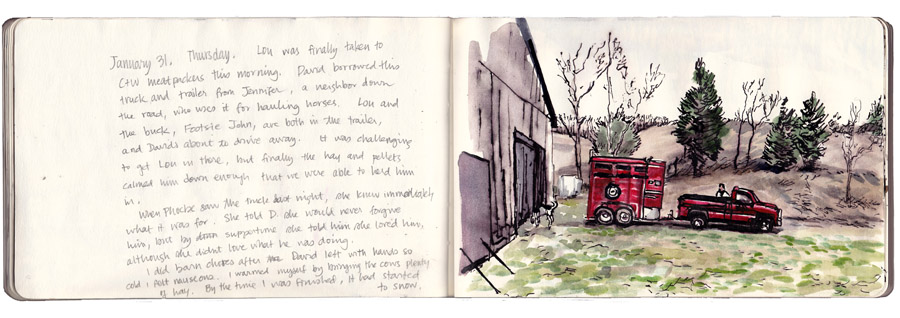 January 31, Thursday. Lou was finally taken to
C+W meatpackers this morning. David borrowed this
truck and trailer from Jennifer, a neighbor down
the road, who uses it for hauling horses. Lou and
the buck, Footsie John, are both in the trailer,
and David's about to drive away. It was challenging
to get Lou in there, but finally the hay and pellets
calmed him down enough that we were able to herd him
in.
When Phoebe saw the truck last night, she knew immediately
what it was for. She told D. she would never forgive
him, but by down suppertime she told him she loved him,
although she didn't love what he was doing.
I did barn chores after David left with hands so
cold I felt nauseous. I warmed myself by bringing the cows plenty
of hay. By the time I was finished, it had started
to snow.